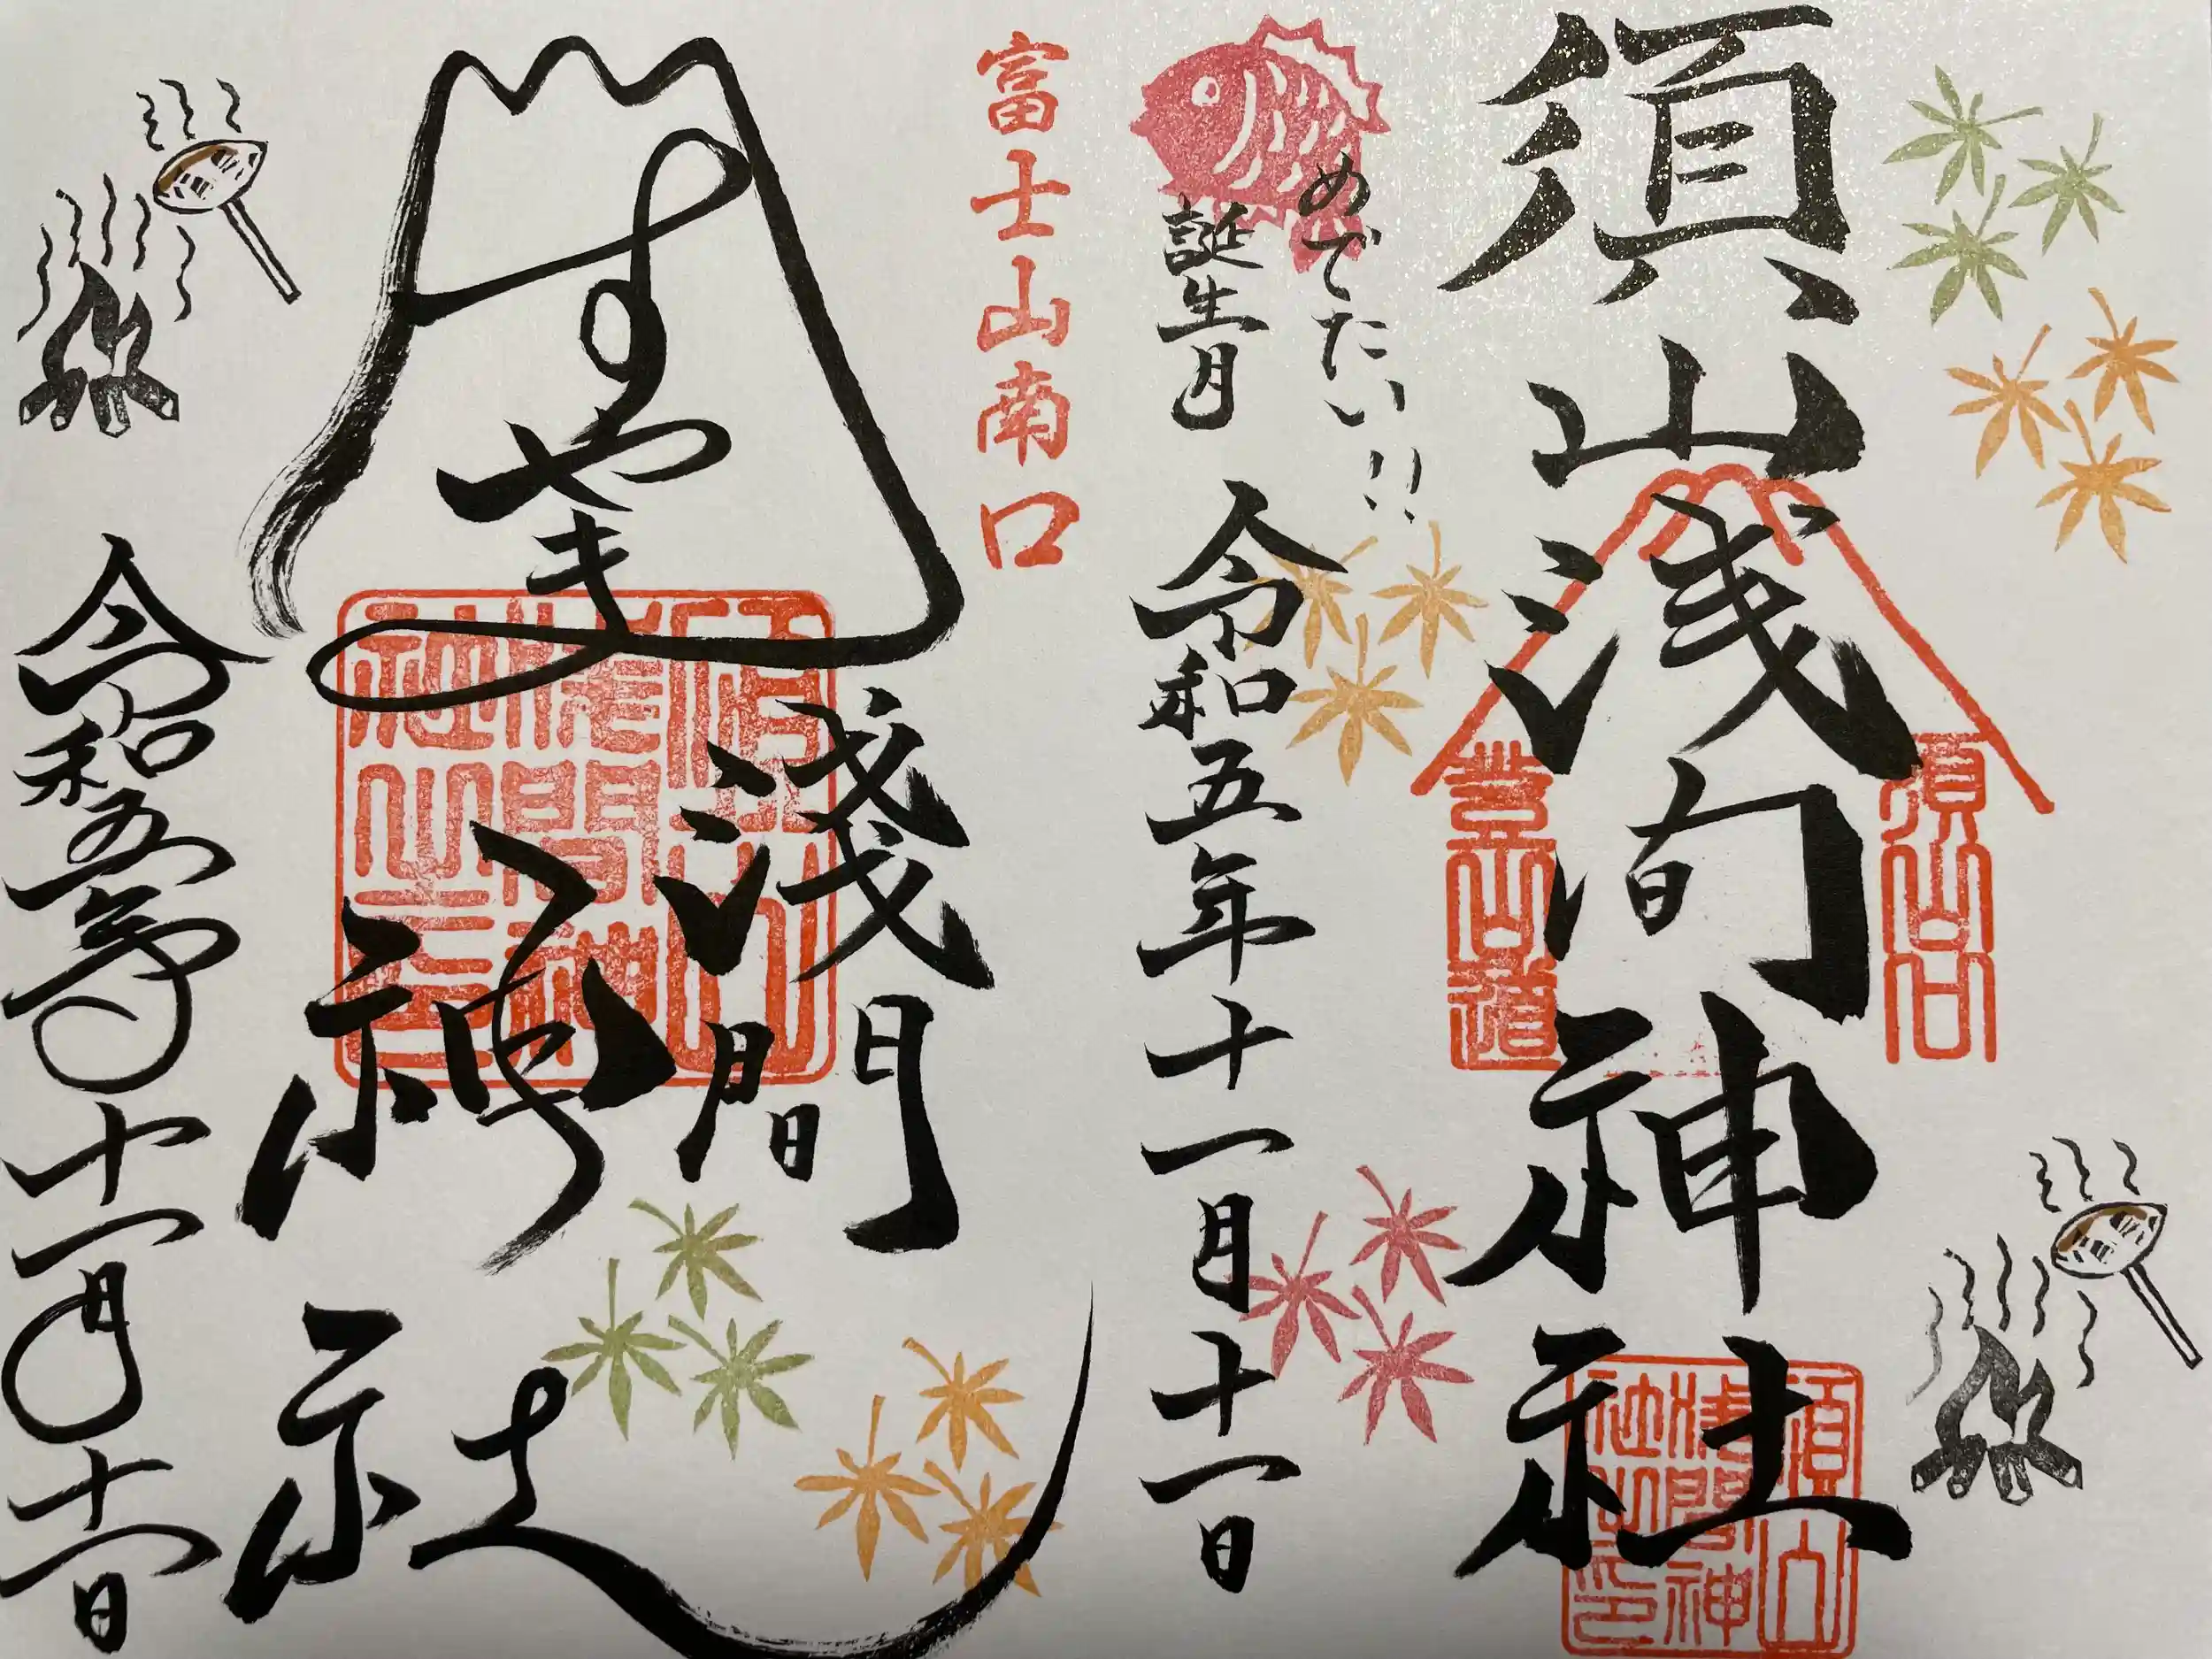 須山浅间神社
須山口
登山道
須山浅間神社之印
めでたい!!
誕生月
令和五年十一月十一日
富士山南口
すやま
淺間
神社
須山浅間神社之印
令和五年十一月十一日